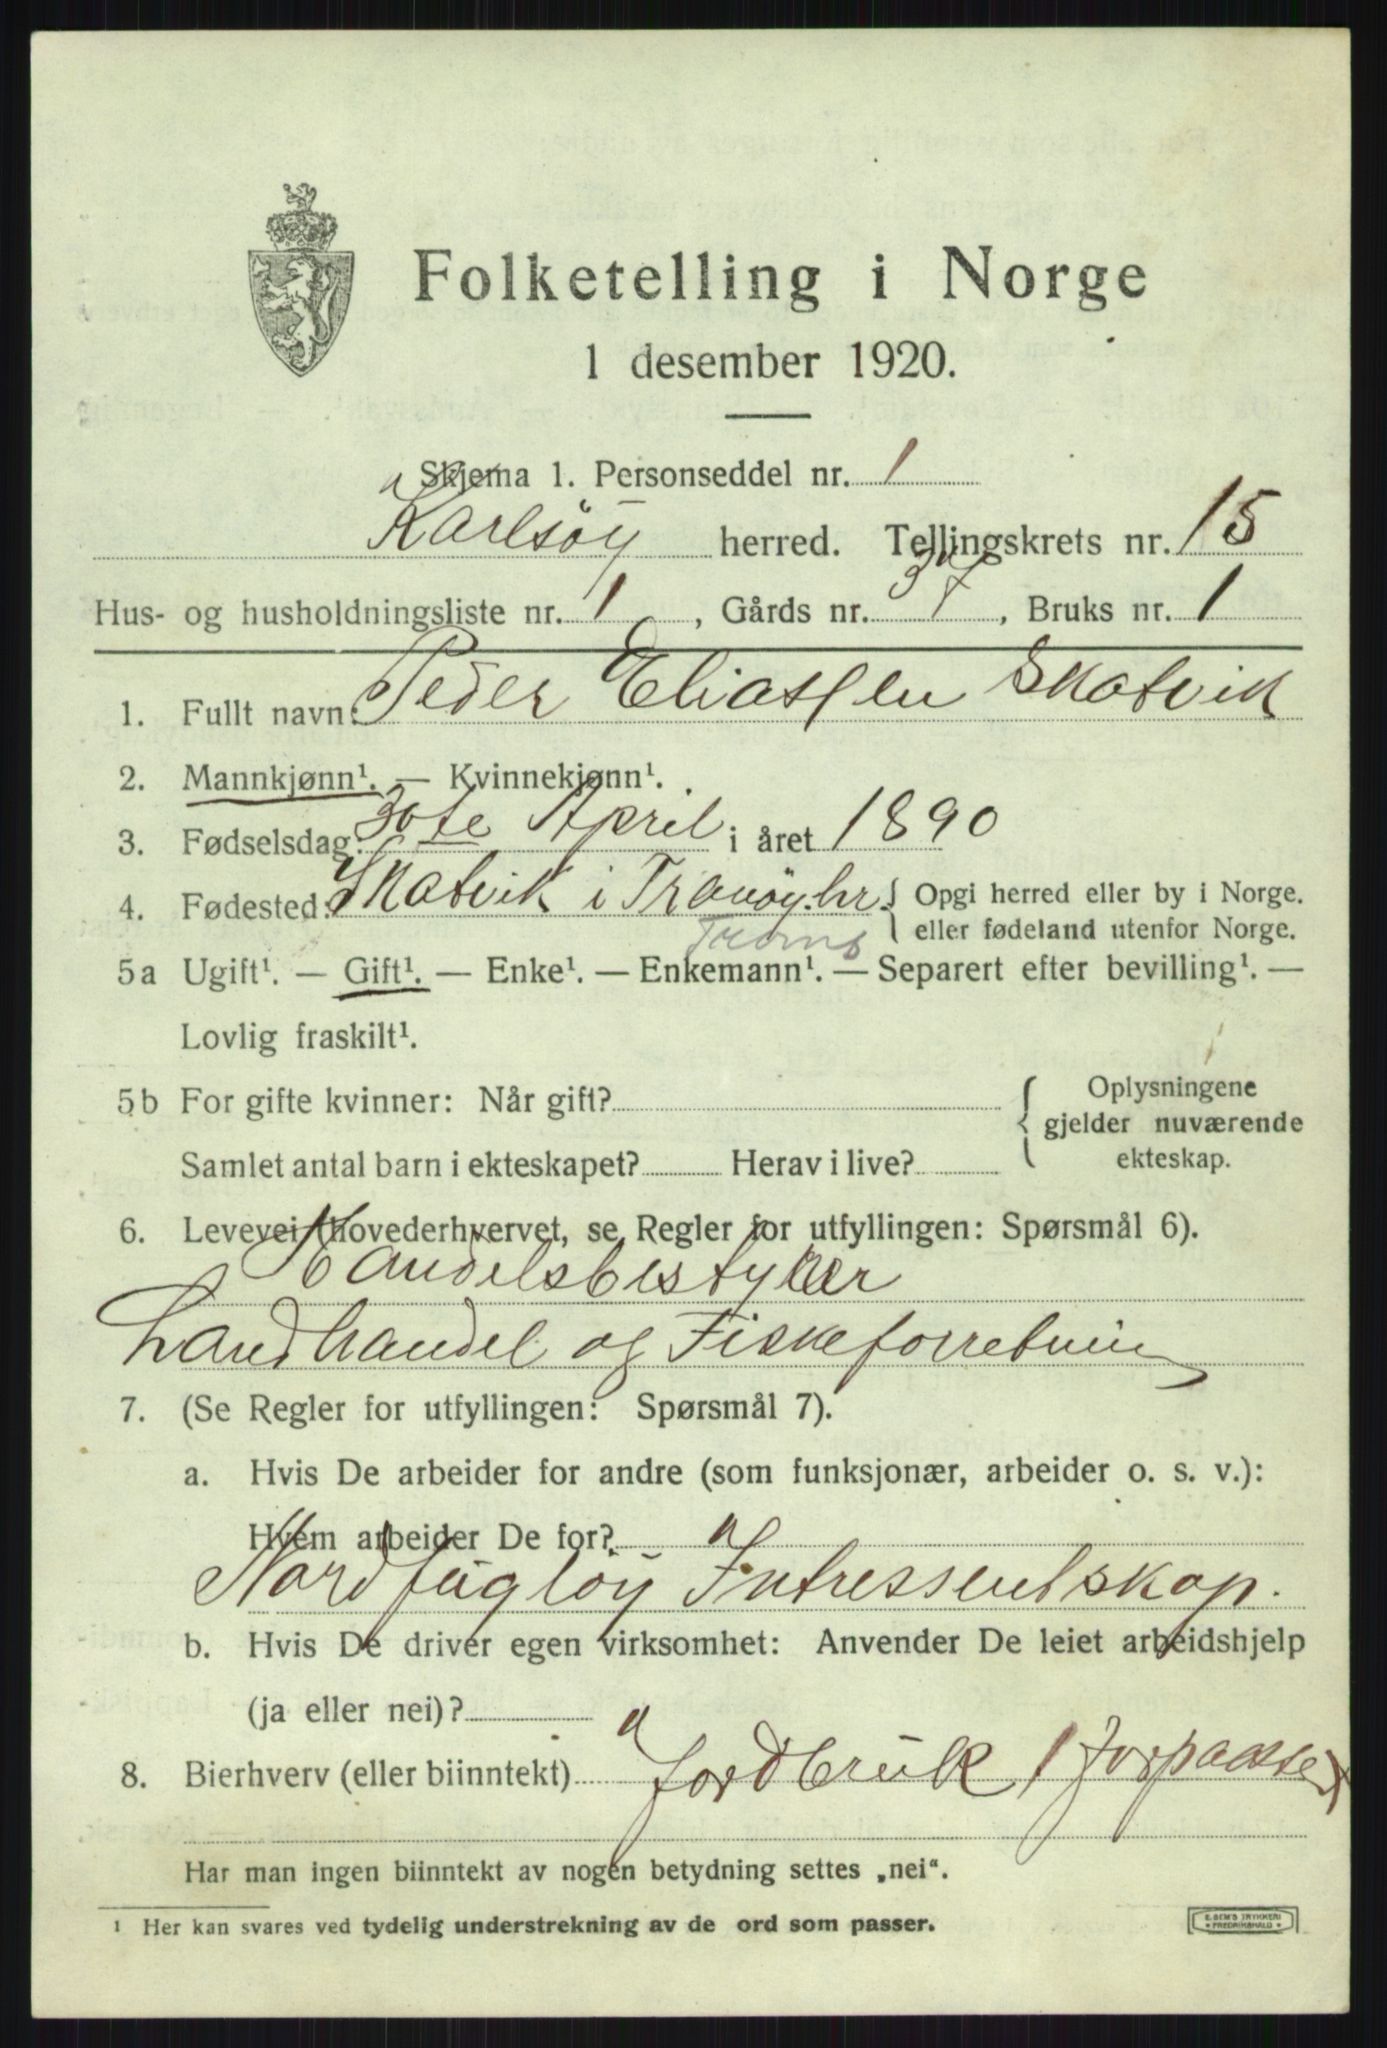 Folketelling i Norge
1 desember 1920.
Skjema 1. Personseddel nr. 1
Karlsöy herred. Tellingskrets nr. 15
Hus- og husholdningsliste nr. 1, Gårds nr. 37, Bruks nr. 1
1. Fullt navn: Peder Eliassen Skatvik
2. Mannkjønn¹. — Kvinnekjønn¹.
3. Fødselsdag: 30te April i året 1890
4. Fødested: Skatvik i Tranöy hr. { Opgi herred eller by i Norge.
Troms eller fødeland utenfor Norge.
5a Ugift¹. — Gift¹. — Enke¹. — Enkemann¹. — Separert efter bevilling¹. —
Lovlig fraskilt¹.
5b For gifte kvinner: Når gift? { Oplysningene
gjelder nuværende
Samlet antal barn i ekteskapet? Herav i live? ekteskap.
6. Levevei (hovederhvervet, se Regler for utfyllingen: Spørsmål 6).
Handelsbestyrer
Landhandel og Fiskeforretning
7. (Se Regler for utfyllingen: Spørsmål 7).
a. Hvis De arbeider for andre (som funksjonær, arbeider o. s. v.):
Hvem arbeider De for?
Nordfugløy Intressentskap.
b. Hvis De driver egen virksomhet: Anvender De leiet arbeidshjelp
(ja eller nei)?
8. Bierhverv (eller biinntekt) Jordbruk (forpaktet)
Har man ingen biinntekt av nogen betydning settes „nei“.
¹ Her kan svares ved tydelig understrekning av de ord som passer.
E. SEM'S TRYKKERI
FREDRIKSHALD